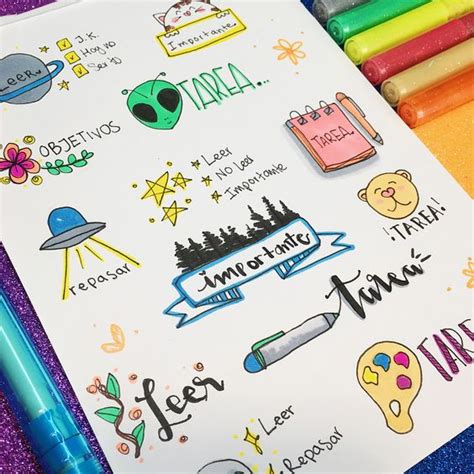 LEER
J.K.
Hoy no
Ser 10
Importante
TAREA...
OBJETIVOS
Leer
No leer
Importante
TAREA
¡TAREA!
repasar
importante
tarea
TAREA
Leer
Leer
Repasar